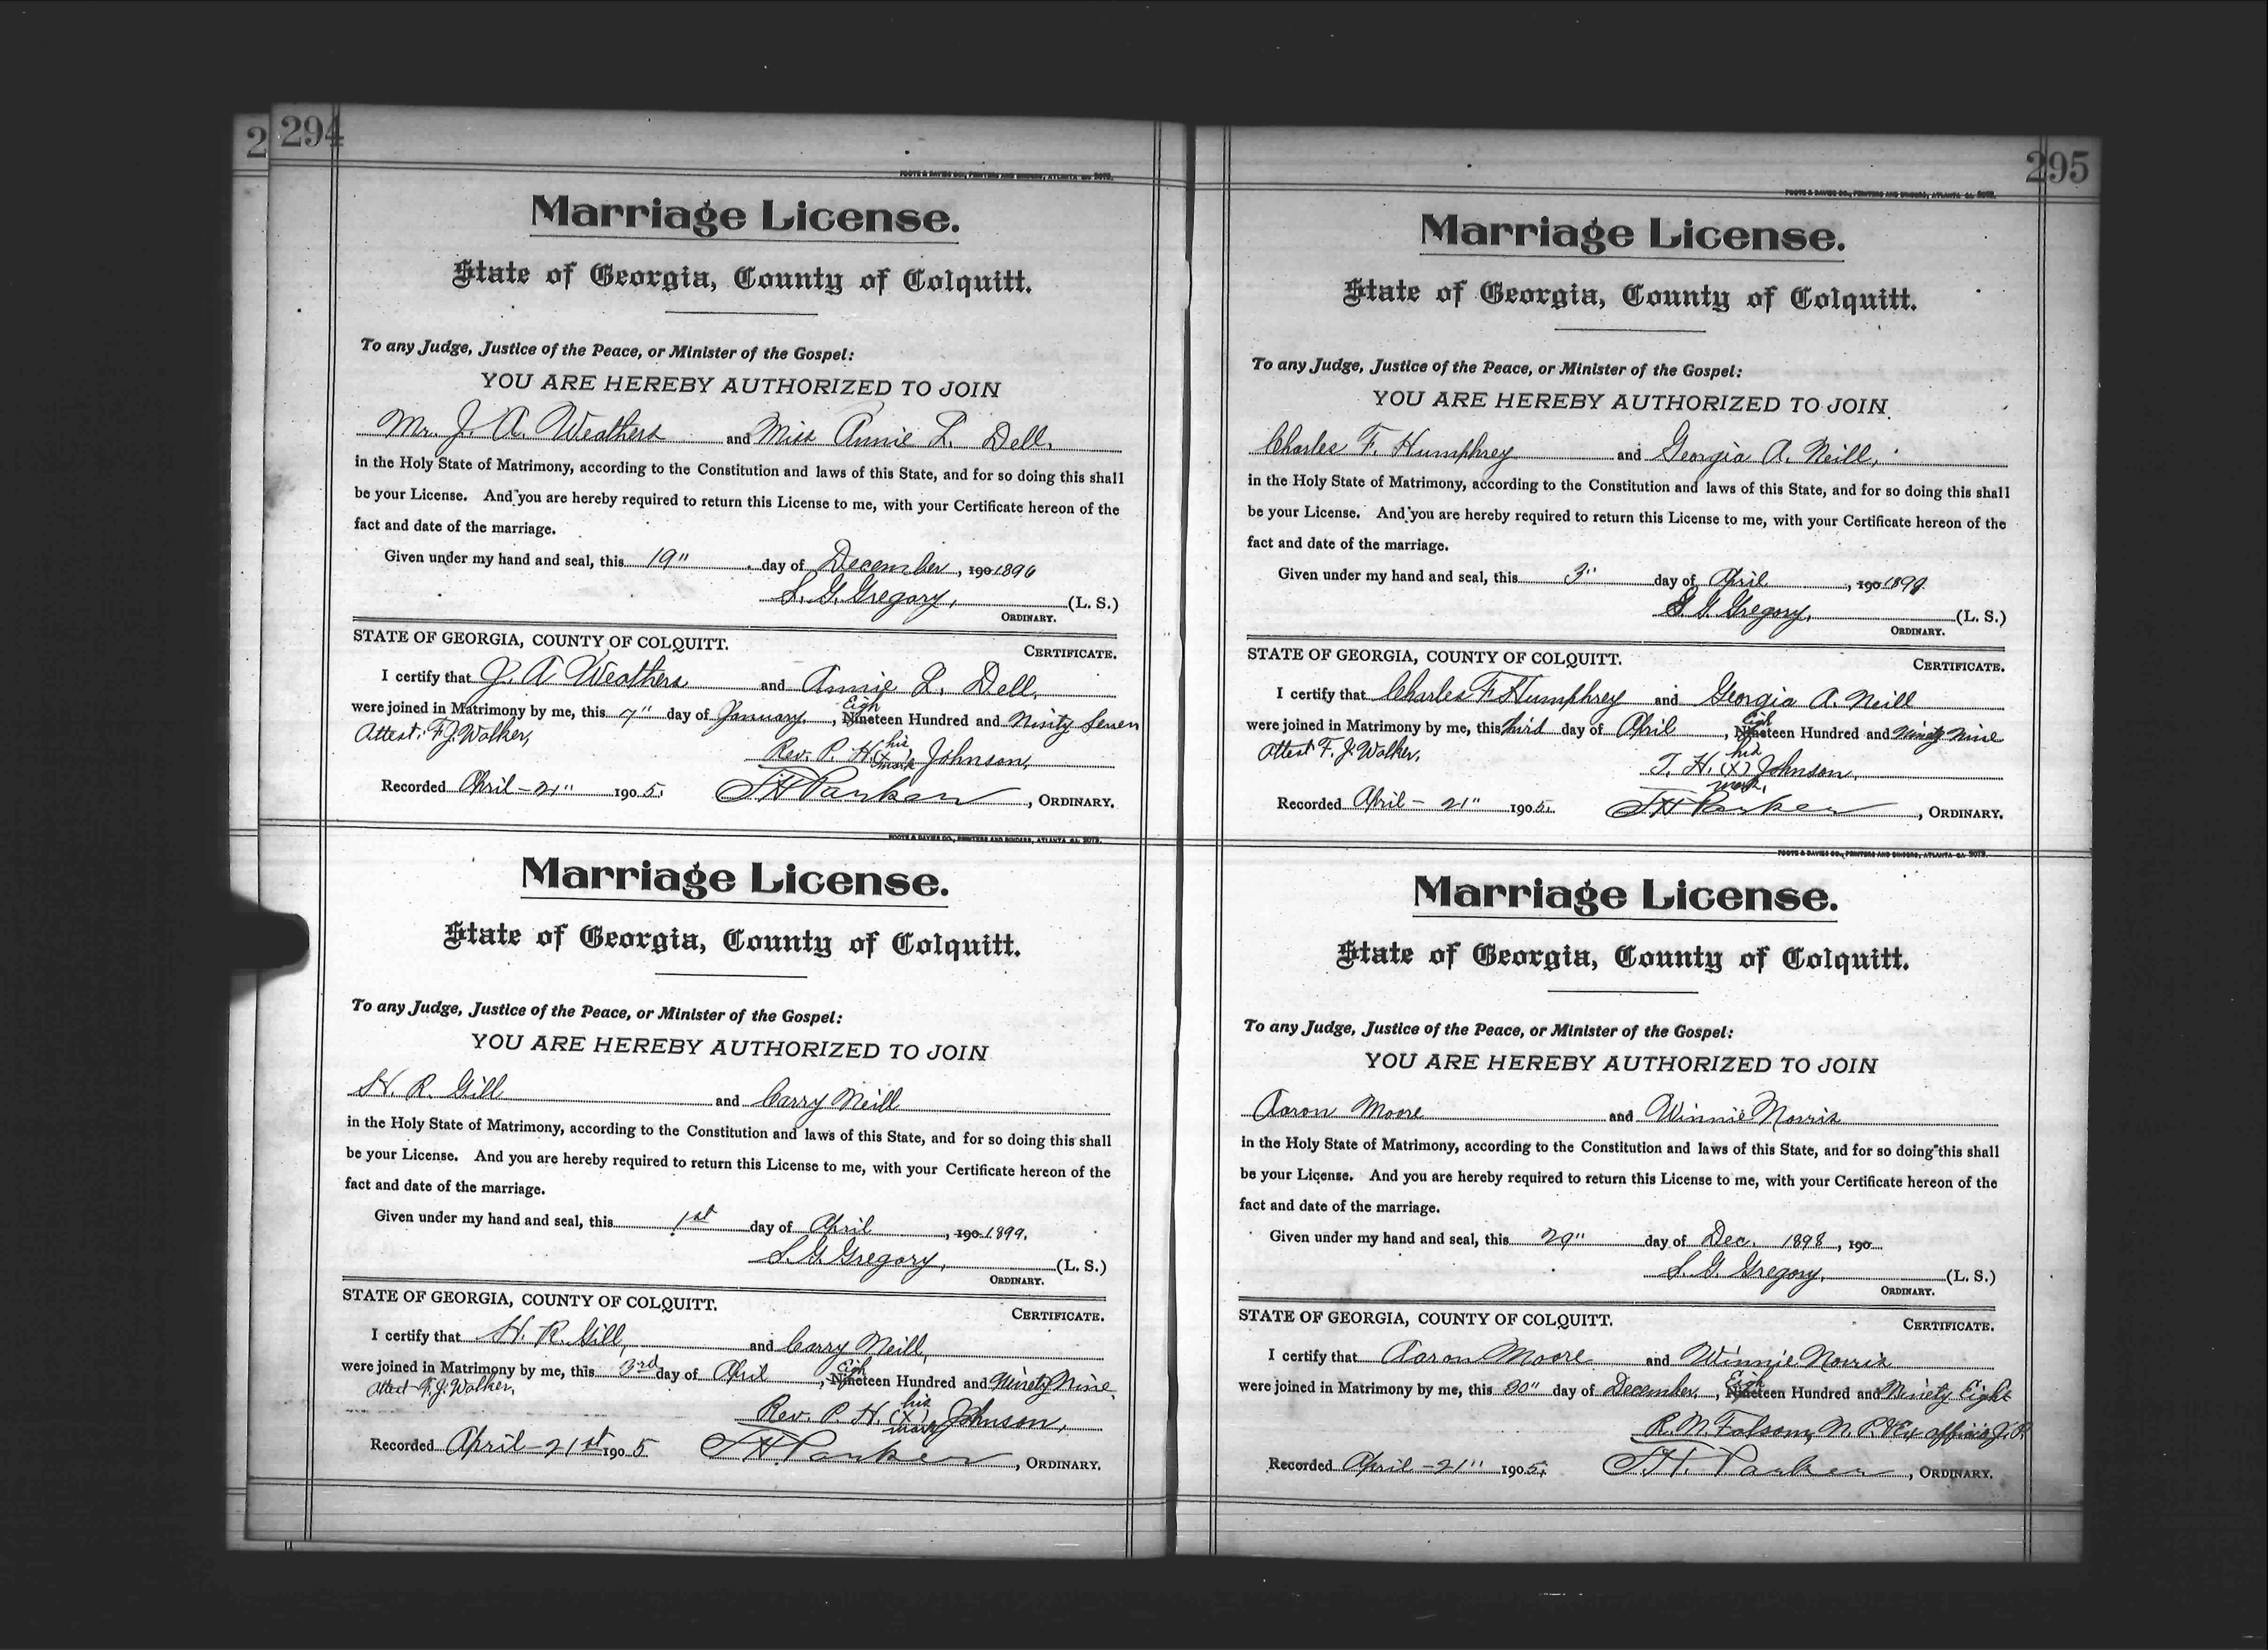 2 294
FOOTE & DAVIES CO., PRINTERS AND BINDERS, ATLANTA GA.
Marriage License.
State of Georgia, County of Colquitt.
To any Judge, Justice of the Peace, or Minister of the Gospel:
YOU ARE HEREBY AUTHORIZED TO JOIN
Mr. J. A. Weathers and Miss Annie L. Dell,
in the Holy State of Matrimony, according to the Constitution and laws of this State, and for so doing this shall
be your License. And you are hereby required to return this License to me, with your Certificate hereon of the
fact and date of the marriage.
Given under my hand and seal, this 19" day of December, 190 1896
S. G. Gregory, (L. S.)
ORDINARY.
STATE OF GEORGIA, COUNTY OF COLQUITT.
CERTIFICATE.
I certify that J. A Weathers and Annie L. Dell,
Eigh
were joined in Matrimony by me, this 7" day of January, Nineteen Hundred and Ninity Seven
Attest: F. J. Walker,
his
Rev. P. H (X) Johnson,
mark
Recorded April - 21" 1905, J H Parker, ORDINARY.
FOOTE & DAVIES CO., PRINTERS AND BINDERS, ATLANTA GA.
Marriage License.
State of Georgia, County of Colquitt.
To any Judge, Justice of the Peace, or Minister of the Gospel:
YOU ARE HEREBY AUTHORIZED TO JOIN
H. R. Gill and Carry Neill
in the Holy State of Matrimony, according to the Constitution and laws of this State, and for so doing this shall
be your License. And you are hereby required to return this License to me, with your Certificate hereon of the
fact and date of the marriage.
Given under my hand and seal, this 1st day of April, 190 1899.
S. G. Gregory, (L. S.)
ORDINARY.
STATE OF GEORGIA, COUNTY OF COLQUITT.
CERTIFICATE.
I certify that H. R. Gill, and Carry Neill,
Eigh
were joined in Matrimony by me, this 3rd day of April, Nineteen Hundred and Ninety Nine,
Attest F. J. Walker,
his
Rev. P. H. (X) Johnson,
mark
Recorded April - 21st 1905 J H. Parker, ORDINARY.
295
FOOTE & DAVIES CO., PRINTERS AND BINDERS, ATLANTA GA.
Marriage License.
State of Georgia, County of Colquitt.
To any Judge, Justice of the Peace, or Minister of the Gospel:
YOU ARE HEREBY AUTHORIZED TO JOIN
Charles F. Humphrey and Georgia A. Neill,
in the Holy State of Matrimony, according to the Constitution and laws of this State, and for so doing this shall
be your License. And you are hereby required to return this License to me, with your Certificate hereon of the
fact and date of the marriage.
Given under my hand and seal, this 3" day of April, 190 1899.
S. G. Gregory, (L. S.)
ORDINARY.
STATE OF GEORGIA, COUNTY OF COLQUITT.
CERTIFICATE.
I certify that Charles F Humphrey and Georgia A. Neill
Eigh
were joined in Matrimony by me, this third day of April, Nineteen Hundred and Ninety Nine
Attest F. J. Walker,
his
T. H. (X) Johnson,
mark,
Recorded April - 21" 1905. J H Parker, ORDINARY.
FOOTE & DAVIES CO., PRINTERS AND BINDERS, ATLANTA GA.
Marriage License.
State of Georgia, County of Colquitt.
To any Judge, Justice of the Peace, or Minister of the Gospel:
YOU ARE HEREBY AUTHORIZED TO JOIN
Aaron Moore and Winnie Norris
in the Holy State of Matrimony, according to the Constitution and laws of this State, and for so doing this shall
be your License. And you are hereby required to return this License to me, with your Certificate hereon of the
fact and date of the marriage.
Given under my hand and seal, this 29" day of Dec. 1898, 190
S. G. Gregory, (L. S.)
ORDINARY.
STATE OF GEORGIA, COUNTY OF COLQUITT.
CERTIFICATE.
I certify that Aaron Moore and Winnie Norris
Eigh
were joined in Matrimony by me, this 30" day of December, Nineteen Hundred and Ninety Eight
R. M. Folsom, N. P. & Ex officio J. P.
Recorded April - 21" 1905, J. H. Parker, ORDINARY.